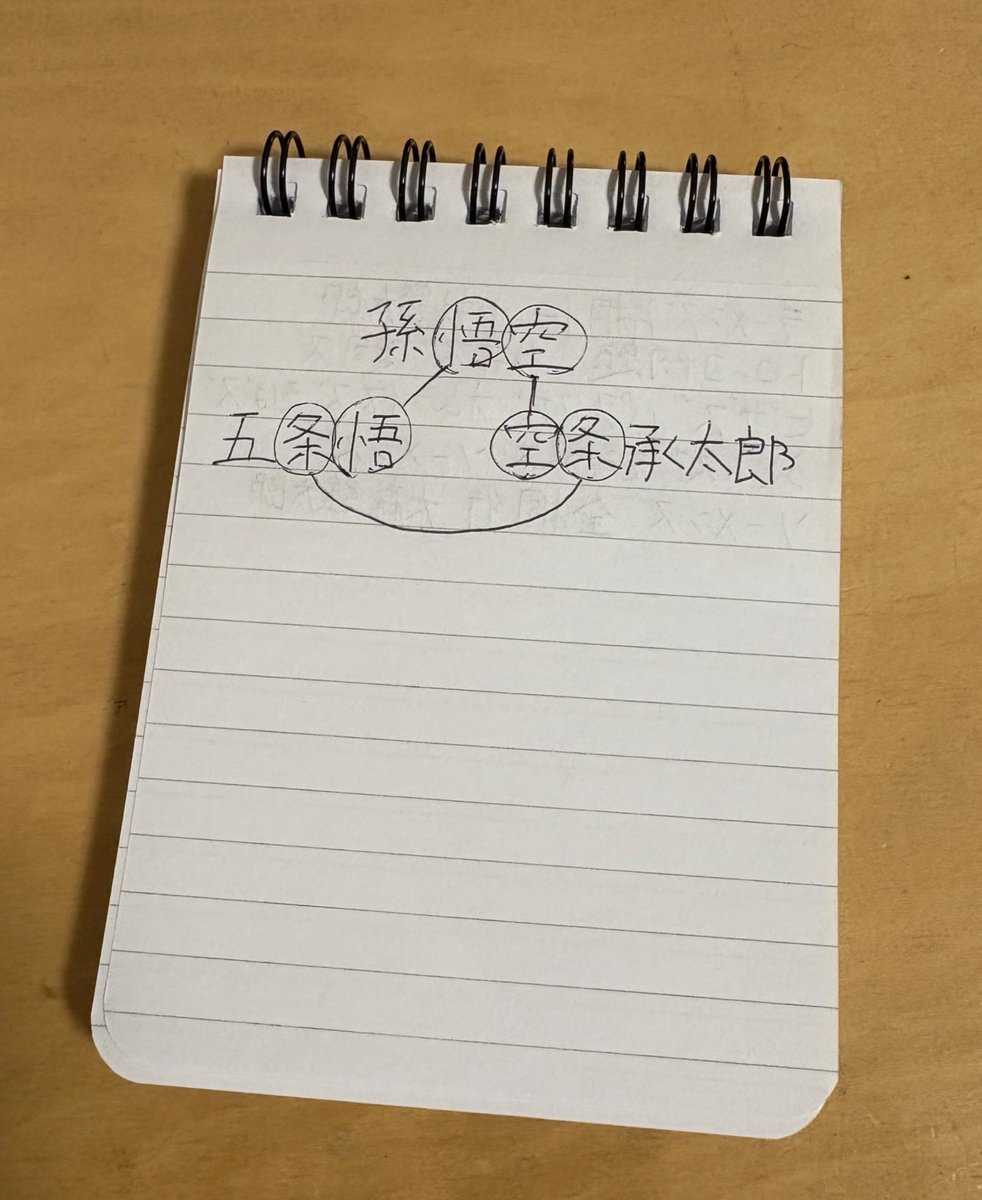 孫悟空
五条悟 空条承太郎